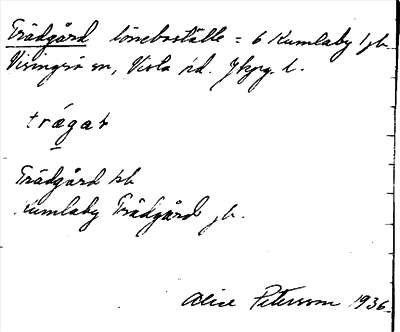 Trädgård löneboställe = 6 Kumlaby 1 jb.
Visingsö sn, Vista hd. Jkpg. l.
trágaɫ
Trädgård kb
Kumlaby Trädgård jb.
Alice Petersson 1936.